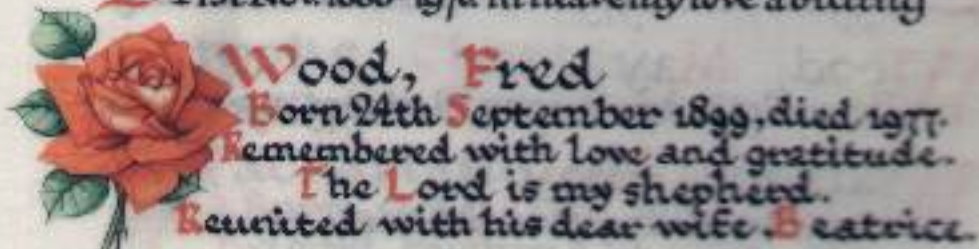 Wood, Fred
Born 24th September 1899, died 1977.
Remembered with love and gratitude.
The Lord is my shepherd.
Reunited with his dear wife Beatrice